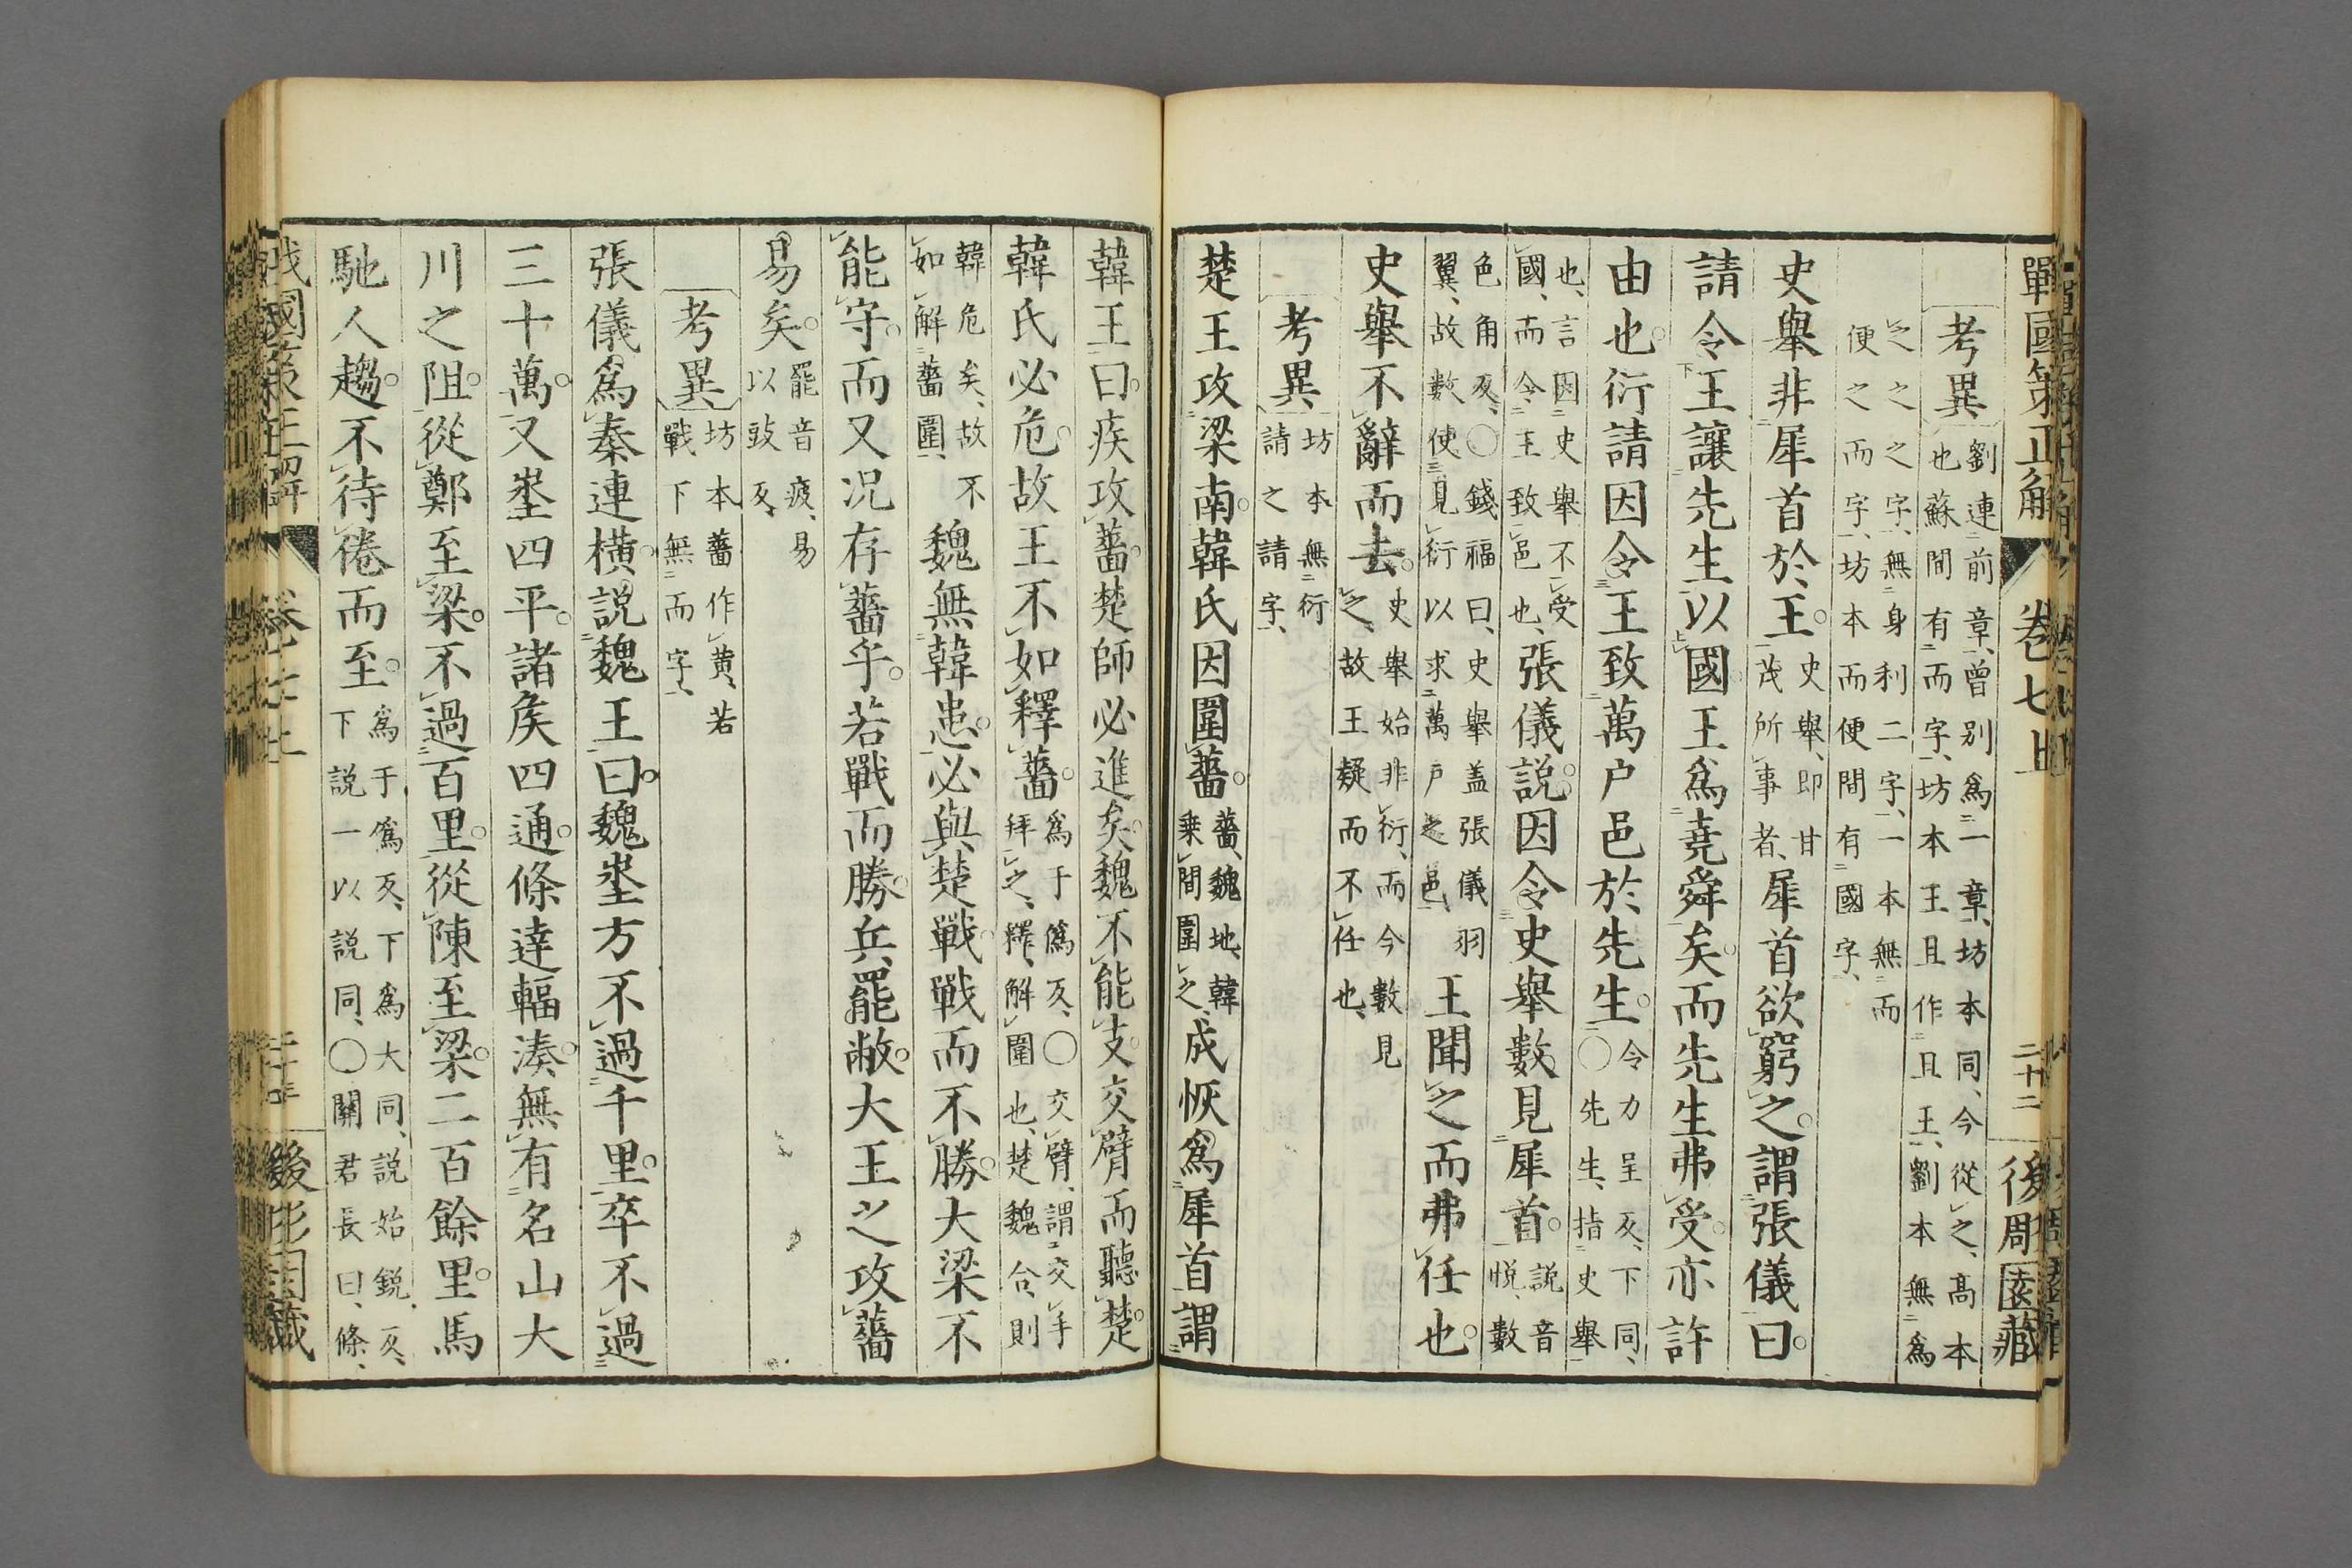 戰國策正解 卷七上 二十二 後周園藏
考異 劉連前章、曾別爲一章、坊本同、今從之、高本
也蘇間有而字、坊本王且作且王、劉本無爲
之之之字、無身利二字、一本無而
便之而字、坊本而便間有國字、
史舉非犀首於王。史舉、即甘
茂所事者、犀首欲窮之。謂張儀曰。
請令王讓先生以國王爲堯舜矣。而先生弗受。亦許
由也。衍請因令王致萬户邑於先生。令力呈反、下同、
〇先生、指史舉
也、言因史舉不受
國、而令王致邑也、張儀説。因令史舉數見犀首。説音
悦、數
色角反、〇錢福曰、史舉盖張儀羽
翼、故數使見衍以求萬戸之邑、王聞之而弗任也。
史舉不辭而去。史舉始非衍、而今數見
之、故王疑而不任也、
考異 坊本無衍
請之請字、
楚王攻梁南。韓氏因圍薔。薔、魏地、韓
乗間圍之、成恢爲犀首謂
韓王曰。疾攻薔。楚師必進矣。魏不能支。交臂而聽楚。
韓氏必危。故王不如釋薔。爲于僞反、〇交臂、謂交手
拜之、釋、解圍也、楚魏合、則
韓危矣、故不
如解薔圍、魏無韓患。必與楚戰。戰而不勝。大梁不
能守。而又况存薔乎。若戰而勝。兵罷敝。大王之攻薔
易矣。罷音疲、易
以豉反、
考異 坊本薔作黄、若
戰下無而字、
張儀爲秦連横。説魏王曰。魏埊方不過千里。卒不過
三十萬。又埊四平。諸矦四通。條達輻湊。無有名山大
川之阻。從鄭至梁。不過百里。從陳至梁。二百餘里。馬
馳人趨。不待倦而至。爲于僞反、下爲大同、説始鋭反、
下説一以説同、〇關君長曰、條、
戰國策正解 卷七上 後周園藏